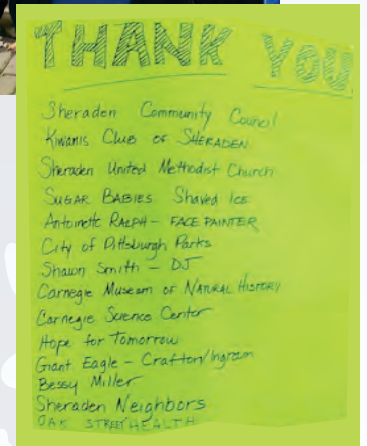 THANK YOU
Sheraden Community Council
Kiwanis Club of SHERADEN
Sheraden United Methodist Church
SUGAR BABIES Shaved Ice
Antoinette RALPH - FACE PAINTER
City of Pittsburgh Parks
Shawn Smith - DJ
Carnegie Museum of NATURAL HISTORY
Carnegie Science Center
Hope for Tomorrow
Giant Eagle - Crafton/Ingram
Bessy Miller
Sheraden Neighbors
OAK STREET HEALTH